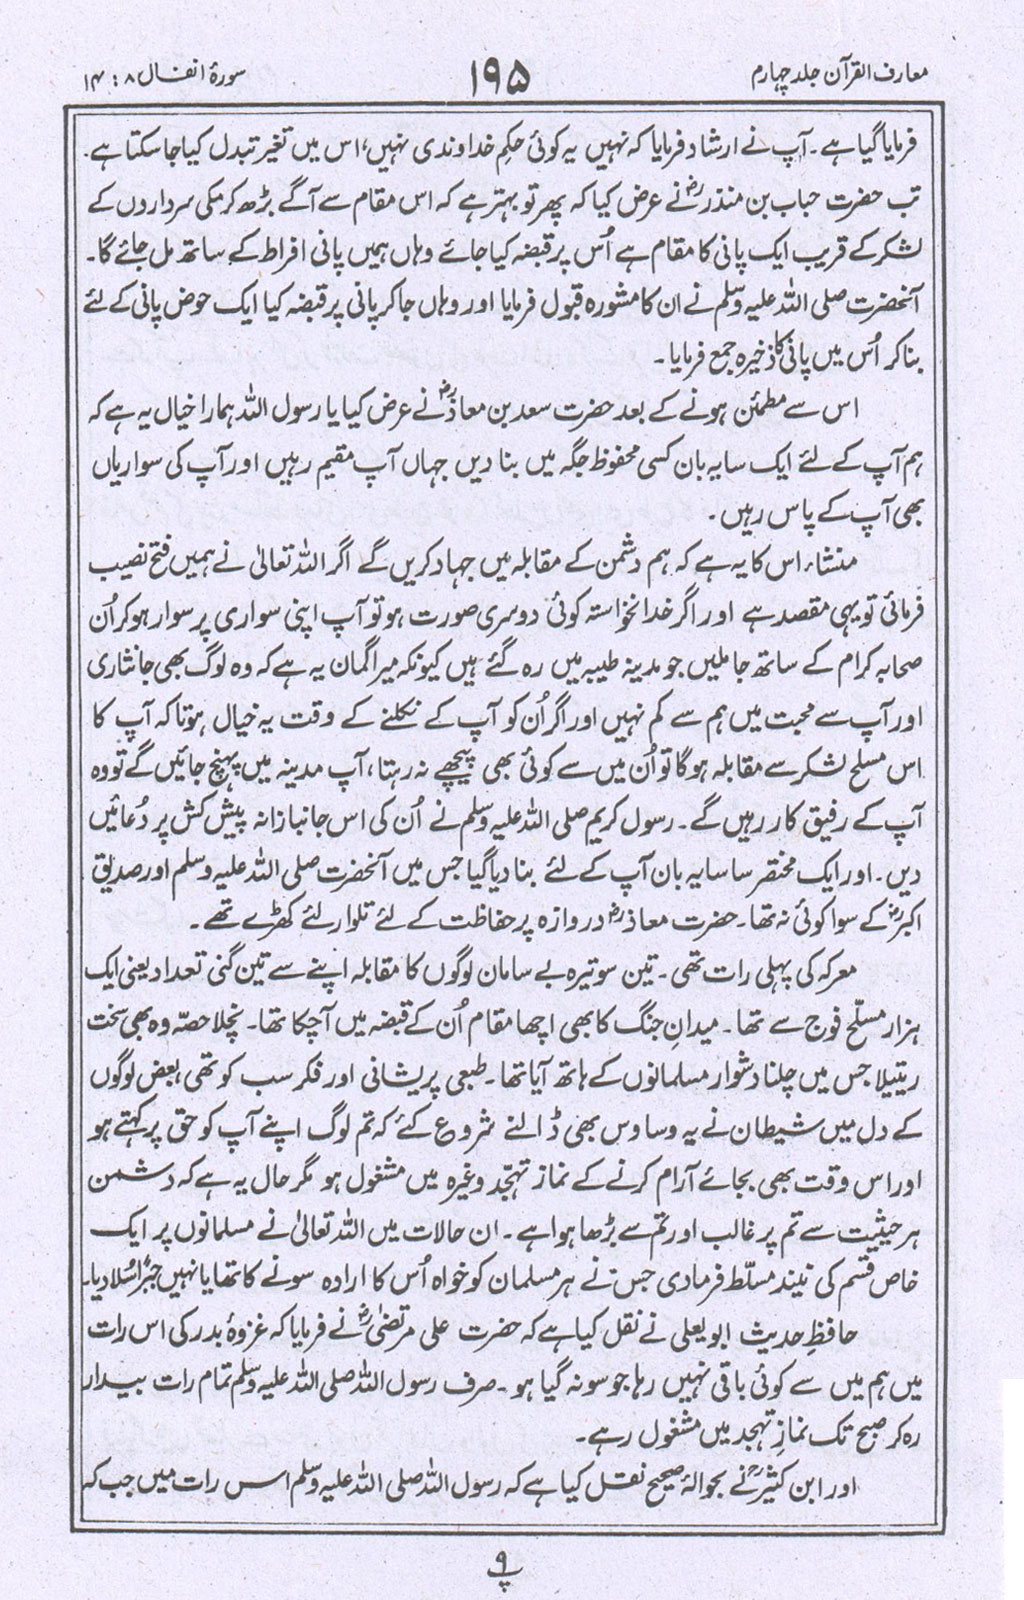 معارف القرآن جلد چہارم
۱۹۵
سورۂ انفال ۸ : ۱۴
فرمایا گیا ہے۔ آپ نے ارشاد فرمایا کہ نہیں یہ کوئی حکم خداوندی نہیں، اس میں تغیر تبدل کیا جا سکتا ہے۔
تب حضرت حباب بن منذرؓ نے عرض کیا کہ پھر تو بہتر ہے کہ اس مقام سے آگے بڑھ کر مکی سرداروں کے
لشکر کے قریب ایک پانی کا مقام ہے اُس پر قبضہ کیا جائے وہاں ہمیں پانی افراط کے ساتھ مل جائے گا۔
آنحضرت صلی اللہ علیہ وسلم نے ان کا مشورہ قبول فرمایا اور وہاں جا کر پانی پر قبضہ کیا ایک حوض پانی کے لئے
بنا کر اُس میں پانی کا ذخیرہ جمع فرمایا۔
اس سے مطمئن ہونے کے بعد حضرت سعد بن معاذؓ نے عرض کیا یا رسول اللہ ہمارا خیال یہ ہے کہ
ہم آپ کے لئے ایک سایہ بان کسی محفوظ جگہ میں بنا دیں جہاں آپ مقیم رہیں اور آپ کی سواریاں
بھی آپ کے پاس رہیں۔
منشاء اس کا یہ ہے کہ ہم دشمن کے مقابلہ میں جہاد کریں گے اگر اللہ تعالیٰ نے ہمیں فتح نصیب
فرمائی تو یہی مقصد ہے اور اگر خدانخواستہ کوئی دوسری صورت ہو تو آپ اپنی سواری پر سوار ہو کر اُن
صحابہ کرام کے ساتھ جا ملیں جو مدینہ طیبہ میں رہ گئے ہیں کیونکہ میرا گمان یہ ہے کہ وہ لوگ بھی جانثاری
اور آپ سے محبت میں ہم سے کم نہیں اور اگر اُن کو آپ کے نکلنے کے وقت یہ خیال ہوتا کہ آپ کا
اس مسلح لشکر سے مقابلہ ہوگا تو اُن میں سے کوئی بھی پیچھے نہ رہتا، آپ مدینہ میں پہنچ جائیں گے تو وہ
آپ کے رفیق کار رہیں گے۔ رسول کریم صلی اللہ علیہ وسلم نے اُن کی اس جانبازانہ پیش کش پر دُعائیں
دیں۔ اور ایک مختصر سا سایہ بان آپ کے لئے بنا دیا گیا جس میں آنحضرت صلی اللہ علیہ وسلم اور صدیق
اکبرؓ کے سوا کوئی نہ تھا۔ حضرت معاذؓ دروازہ پر حفاظت کے لئے تلوار لئے کھڑے تھے۔
معرکہ کی پہلی رات تھی۔ تین سو تیرہ بے سامان لوگوں کا مقابلہ اپنے سے تین گنی تعداد یعنی ایک
ہزار مسلّح فوج سے تھا۔ میدانِ جنگ کا بھی اچھا مقام اُن کے قبضہ میں آچکا تھا۔ نچلا حصّہ وہ بھی سخت
ریتیلا جس میں چلنا دشوار مسلمانوں کے ہاتھ آیا تھا۔ طبعی پریشانی اور فکر سب کو تھی، بعض لوگوں
کے دل میں شیطان نے یہ وساوس بھی ڈالنے شروع کئے کہ تم لوگ اپنے آپ کو حق پر کہتے ہو
اور اس وقت بھی بجائے آرام کرنے کے نماز تہجّد وغیرہ میں مشغول ہو مگر حال یہ ہے کہ دشمن
ہر حیثیت سے تم پر غالب اور تم سے بڑھا ہوا ہے۔ ان حالات میں اللہ تعالیٰ نے مسلمانوں پر ایک
خاص قسم کی نیند مسلّط فرما دی جس نے ہر مسلمان کو خواہ اُس کا ارادہ سونے کا تھا یا نہیں جبراً سُلا دیا۔
حافظِ حدیث ابو یعلی نے نقل کیا ہے کہ حضرت علی مرتضیٰؓ نے فرمایا کہ غزوۂ بدر کی اس رات
میں ہم میں سے کوئی باقی نہیں رہا جو سو نہ گیا ہو۔ صرف رسول اللہ صلی اللہ علیہ وسلم تمام رات بیدار
رہ کر صبح تک نمازِ تہجد میں مشغول رہے۔
اور ابن کثیرؒ نے بحوالۂ صحیح نقل کیا ہے کہ رسول اللہ صلی اللہ علیہ وسلم اس رات میں جب کہ